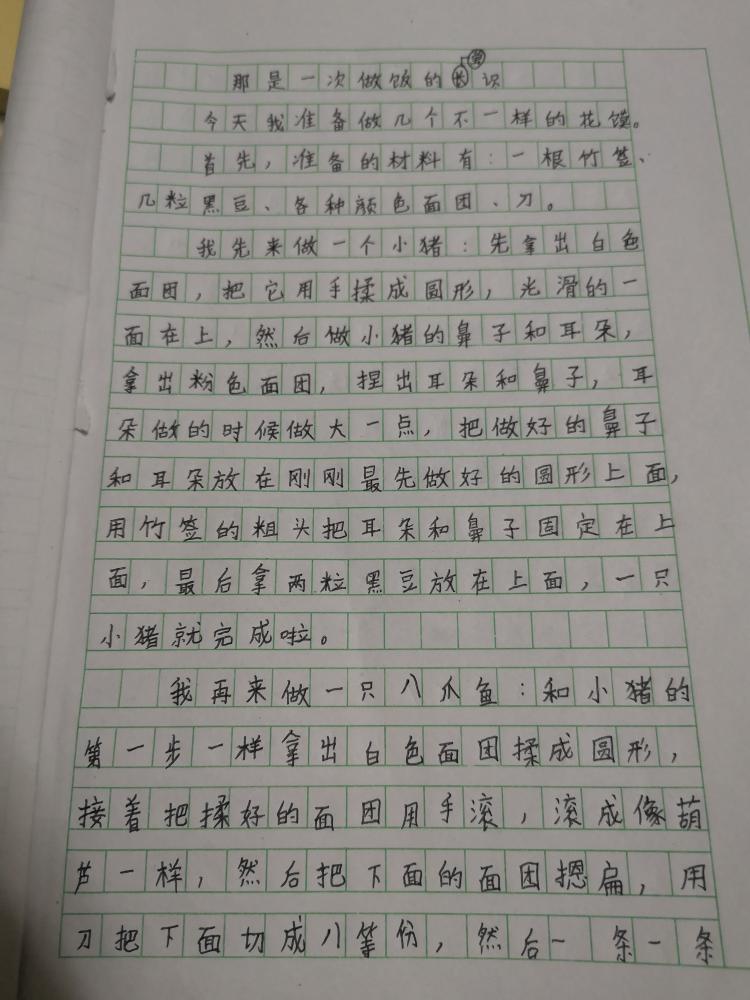 那是一次做饭的尝识
今天我准备做几个不一样的花馍。
首先，准备的材料有：一根竹签、
几粒黑豆、各种颜色面团、刀。
我先来做一个小猪：先拿出白色
面团，把它用手揉成圆形，光滑的一
面在上，然后做小猪的鼻子和耳朵，
拿出粉色面团，捏出耳朵和鼻子，耳
朵做的时候做大一点，把做好的鼻子
和耳朵放在刚刚最先做好的圆形上面，
用竹签的粗头把耳朵和鼻子固定在上
面，最后拿两粒黑豆放在上面，一只
小猪就完成啦。
我再来做一只八爪鱼：和小猪的
第一步一样拿出白色面团揉成圆形，
接着把揉好的面团用手滚，滚成像葫
芦一样，然后把下面的面团摁扁，用
刀把下面切成八等份，然后一条一条